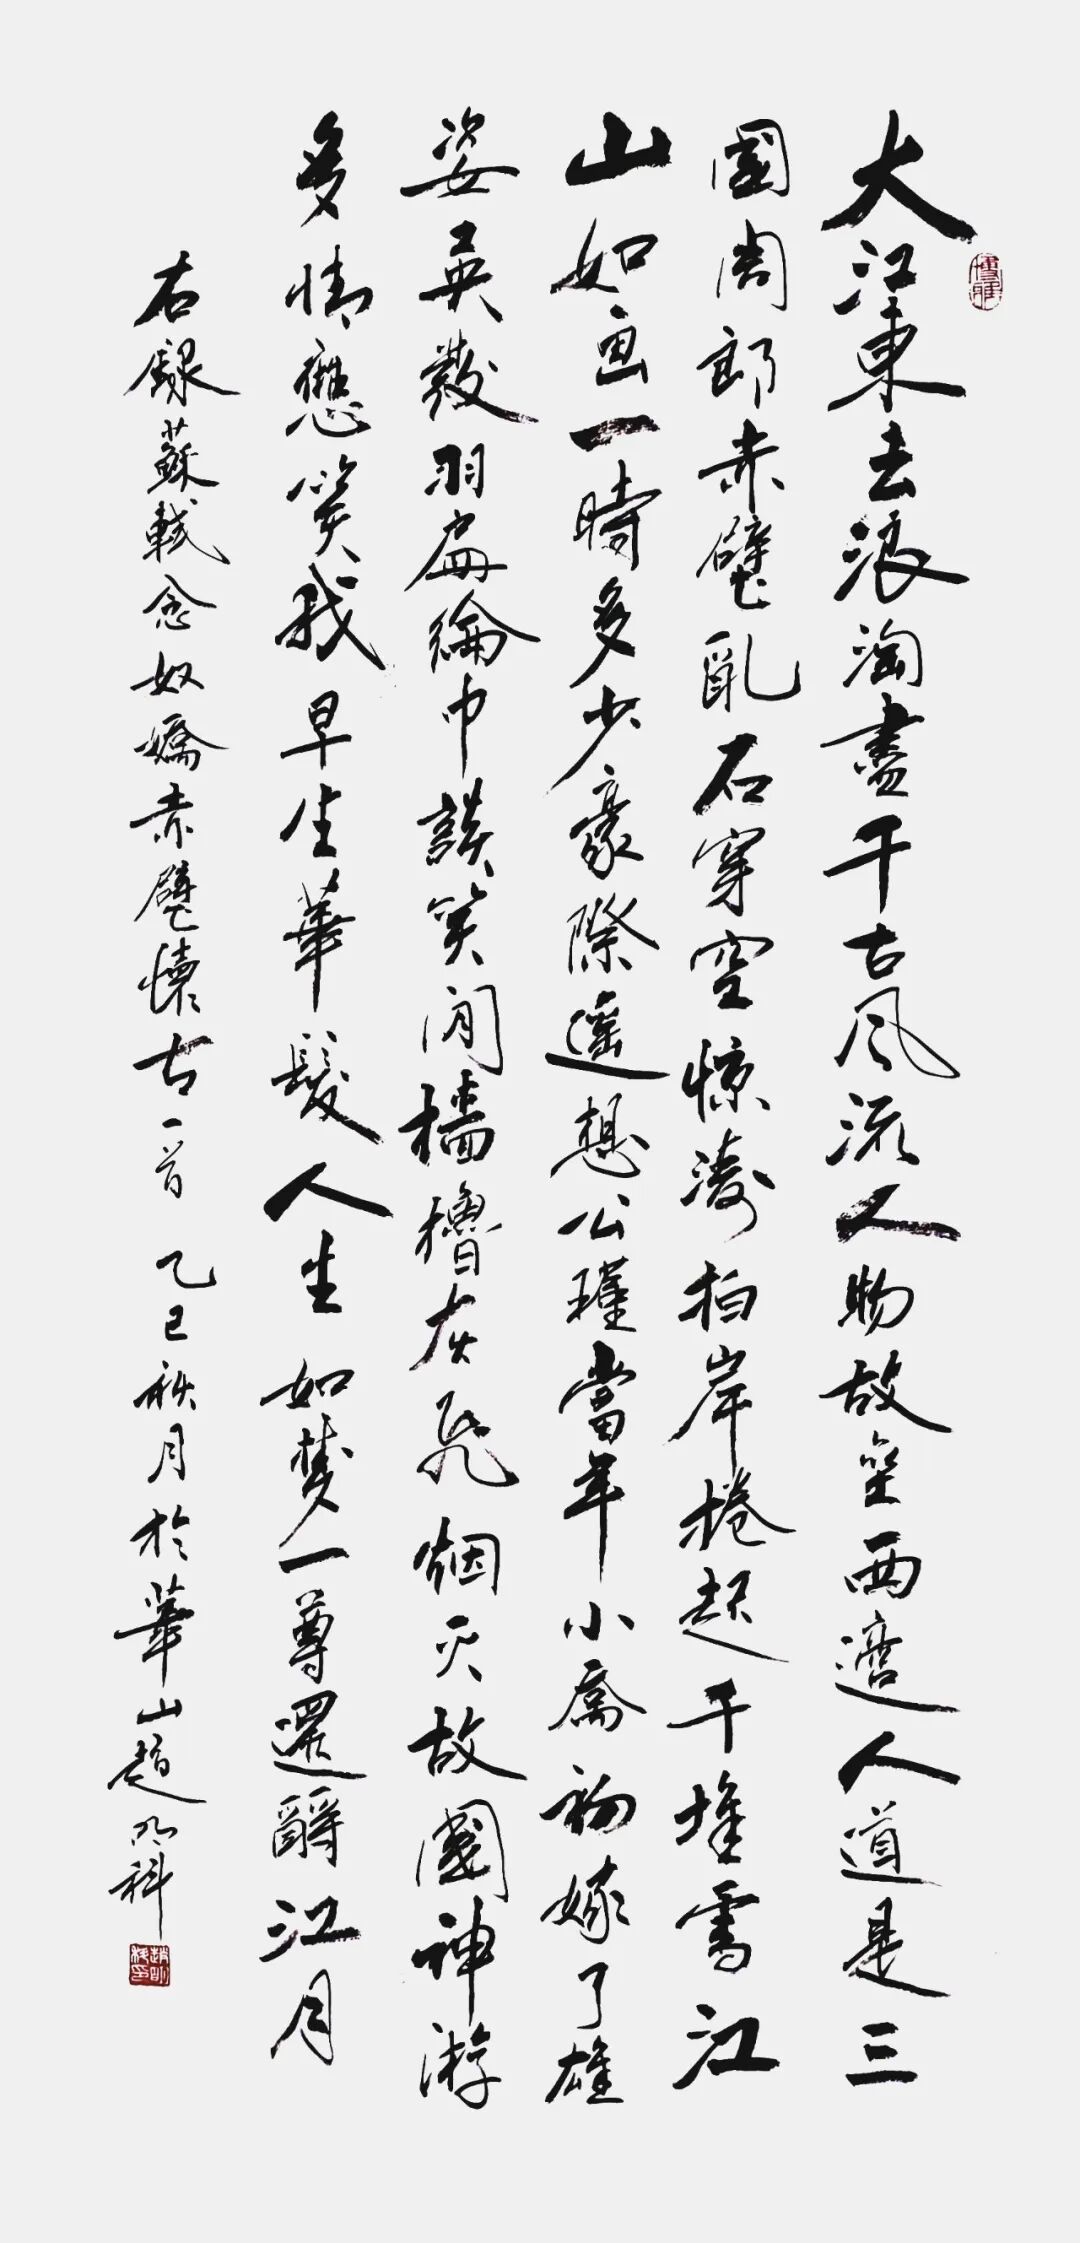 大江東去浪淘盡千古风流人物故垒西邊人道是三
國周郎赤壁亂石穿空惊濤拍岸捲起千堆雪江
山如画一時多少豪際遥想公瑾當年小喬初嫁了雄
姿英發羽扇綸巾談笑间檣櫓灰飛烟灭故國神游
多情應笑我早生華髮人生如梦一尊還酹江月
右録蘇軾念奴嬌赤壁懷古一首 乙巳秋月於華山趙明科
博雅
趙明科印